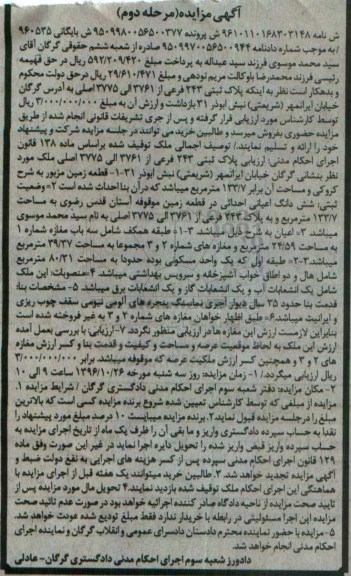 آگهی مزایده(مرحله دوم)
ش نامه ۹۶۱۰۱۱۰۱۶۸۳۰۳۱۴۸ ش پرونده ۹۵۰۹۹۸۰۰۵۶۵۰۰۳۷۷ ش بایگانی ۹۶۰۵۳۵
/ به موجب شماره دادنامه ۹۵۰۹۹۷۰۰۵۶۵۰۰۹۴۴ صادره از شعبه ششم حقوقی گرگان آقای
سید محمد موسوی فرزند سید عبداله به پرداخت مبلغ ۵۹۲/۲۰۹/۴۲۰ ریال در حق فهیمه
رئیسی فرزند محمدرضا باوکالت مریم نودهی و مبلغ ۲۹/۶۱۰/۴۷۱ ریال درحق دولت محکوم
و بدهکار است نظر به اینکه پلاک ثبتی ۲۴۳ فرعی از ۳۷۶۱ الی ۳۷۷۵ اصلی به آدرس گرگان
خیابان ایرانمهر (شریعتی) نبش آبوذر ۳۱ بازداشت و ارزش آن به مبلغ ۳/۰۰۰/۰۰۰/۰۰۰ ریال
توسط کارشناس مورد ارزیابی قرار گرفته و پس از جری تشریفات قانونی انجام شده از طریق
مزایده حضوری بفروش میرسد و طالبین خرید می توانند در جلسه مزایده شرکت و پیشنهاد
خود را ارائه و تسلیم نمایند./ توصیف اجمالی ملک توقیف شده براساس ماده ۱۳۸ قانون
اجرای احکام مدنی: ارزیابی پلاک ثبتی ۲۴۳ فرعی از ۳۷۶۱ الی ۳۷۷۵ اصلی ملک مورد
نظر بنشانی گرگان خیابان ایرانمهر (شریعتی) نبش آبوذر ۳۱ ۱- قطعه زمین مزبور به شرح
کروکی و مساحت آن برابر ۱۳۳/۷ مترمربع میباشد که در آن بنا احداث شده است ۲-وضعیت
ثبتی: شش دانگ اعیانی احداثی در قطعه زمین موقوفه آستان قدس رضوی به مساحت
۱۳۳/۷ مترمربع و به پلاک ۲۴۳ فرعی از ۳۷۶۱ الی ۳۷۷۵ اصلی به نام سید محمد موسوی
میباشد ۳- اعیان به شرح ذیل میباشد ۳-۱- طبقه همکف شامل سه باب مغازه شماره ۱
به مساحت ۲۴/۵۹ مترمربع و مغازه های شماره ۲ و ۳ مجموعا به مساحت ۳۹/۳۷ مترمربع
میباشد.۳-۲- طبقه اول که یک واحد مسکونی بوده حدودا به مساحت ۸۰/۳۱ مترمربع
شامل هال و دو اطاق خواب آشپزخانه و سرویس بهداشتی میباشد. ۴-منصوبات: این ملک
شامل یک انشعابات آب و یک انشعابات گاز و یک انشعابات برق میباشد. ۵- مشخصات بنا:
قدمت بنا حدود ۳۵ سال دیوار آجری نماسنگ پنجره های آلومی نیومی سقف چوب ریزی
و ایرانیت میباشد.۶- طبق اظهار خواهان مغازه های شماره ۲ و ۳ به غیر فروخته شده است
بنابراین لازمست ارزش این مغازه ها در ارزیابی منظور نگردد. ۷-ارزیابی: با بررسی بعمل آمده
ارزش این ملک به لحاظ موقعیت عرصه و مساحت و کیفیت و قدمت بنا و کسر ارزش مغازه
های ۲ و ۳ و همچنین کسر ارزش ملکیت عرصه که موقوفه میباشد. برابر ۳/۰۰۰/۰۰۰/۰۰۰
ریال ارزیابی میگردد./ ۱- زمان مزایده: روز سه شنبه مورخه ۱۳۹۶/۱۰/۲۶ ساعت ۹ الی ۱۰
۲- مکان مزایده: دفتر شعبه سوم اجرای احکام مدنی دادگستری گرگان / شرایط مزایده ۱.
مزایده از مبلغی که توسط کارشناس تعیین شده شروع برنده مزایده کسی است که بالاترین
مبلغ را درجلسه مزایده قبول نماید.۲. برنده مزایده میبایست ۱۰ درصد مبلغ مورد پیشنهاد را
نقدا به حساب سپرده دادگستری واریز و ما بقی آن را ظرف یک ماه از تاریخ اجرای مزایده به
حساب سپرده واریز قبض واریز شده را تحویل دایره اجرا نماید در غیر این صورت وفق ماده
۱۲۹ قانون اجرای احکام مدنی سپرده پس از کسر هزینه های اجرایی به نفع دولت ضبط و
آگهی مزایده تجدید خواهد شد. ۳. طالبین خرید میتوانند یک هفته قبل از اجرای مزایده با
هماهنگی این اجرای احکام ملک توقیف شده بازدید نمایند. ۴. تحویل مال مورد مزایده پس از
تایید صحت مزایده از ناحیه دادگاه صادر کننده اجرائیه خواهد بود در صورت عدم تائید صحت
مزایده این اجرا مسئولیتی در رابطه با خریدار ندارد فقط مبلغ تودیع شده عودت خواهد شد.
۵- مزایده با حضور نماینده محترم دادستان دادسرای عمومی و انقلاب گرگان و نماینده اجرای
احکام مدنی انجام خواهد شد.
دادورز شعبه سوم اجرای احکام مدنی دادگستری گرگان- عادلی